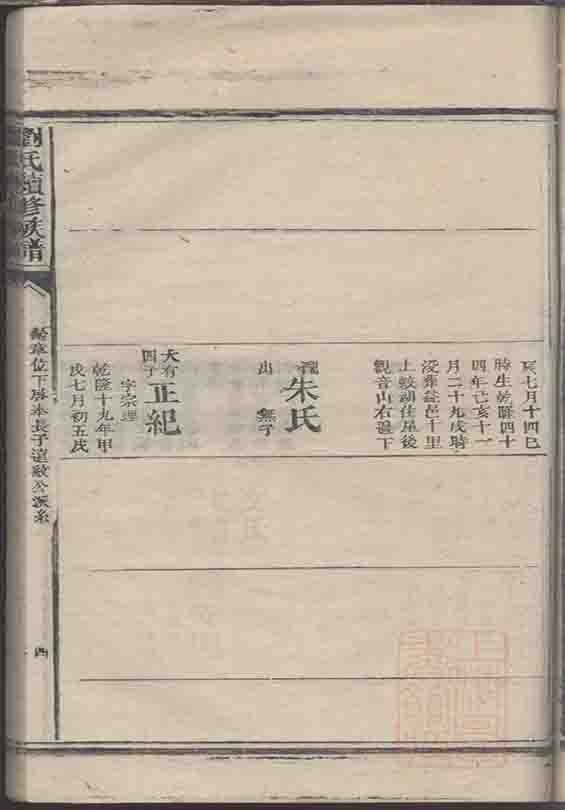 亥七月十四巳
時生乾隆四十
四年己亥十一
月二十九戌時
沒葬益邑十里
上蛟湖住屋後
觀音山右邊下
配
朱氏
出 無子
大有
四子
正紀
字宗理
乾隆十九年甲
戌七月初五戌
劉氏續修族譜
位下房本長子遠敏公派系
四